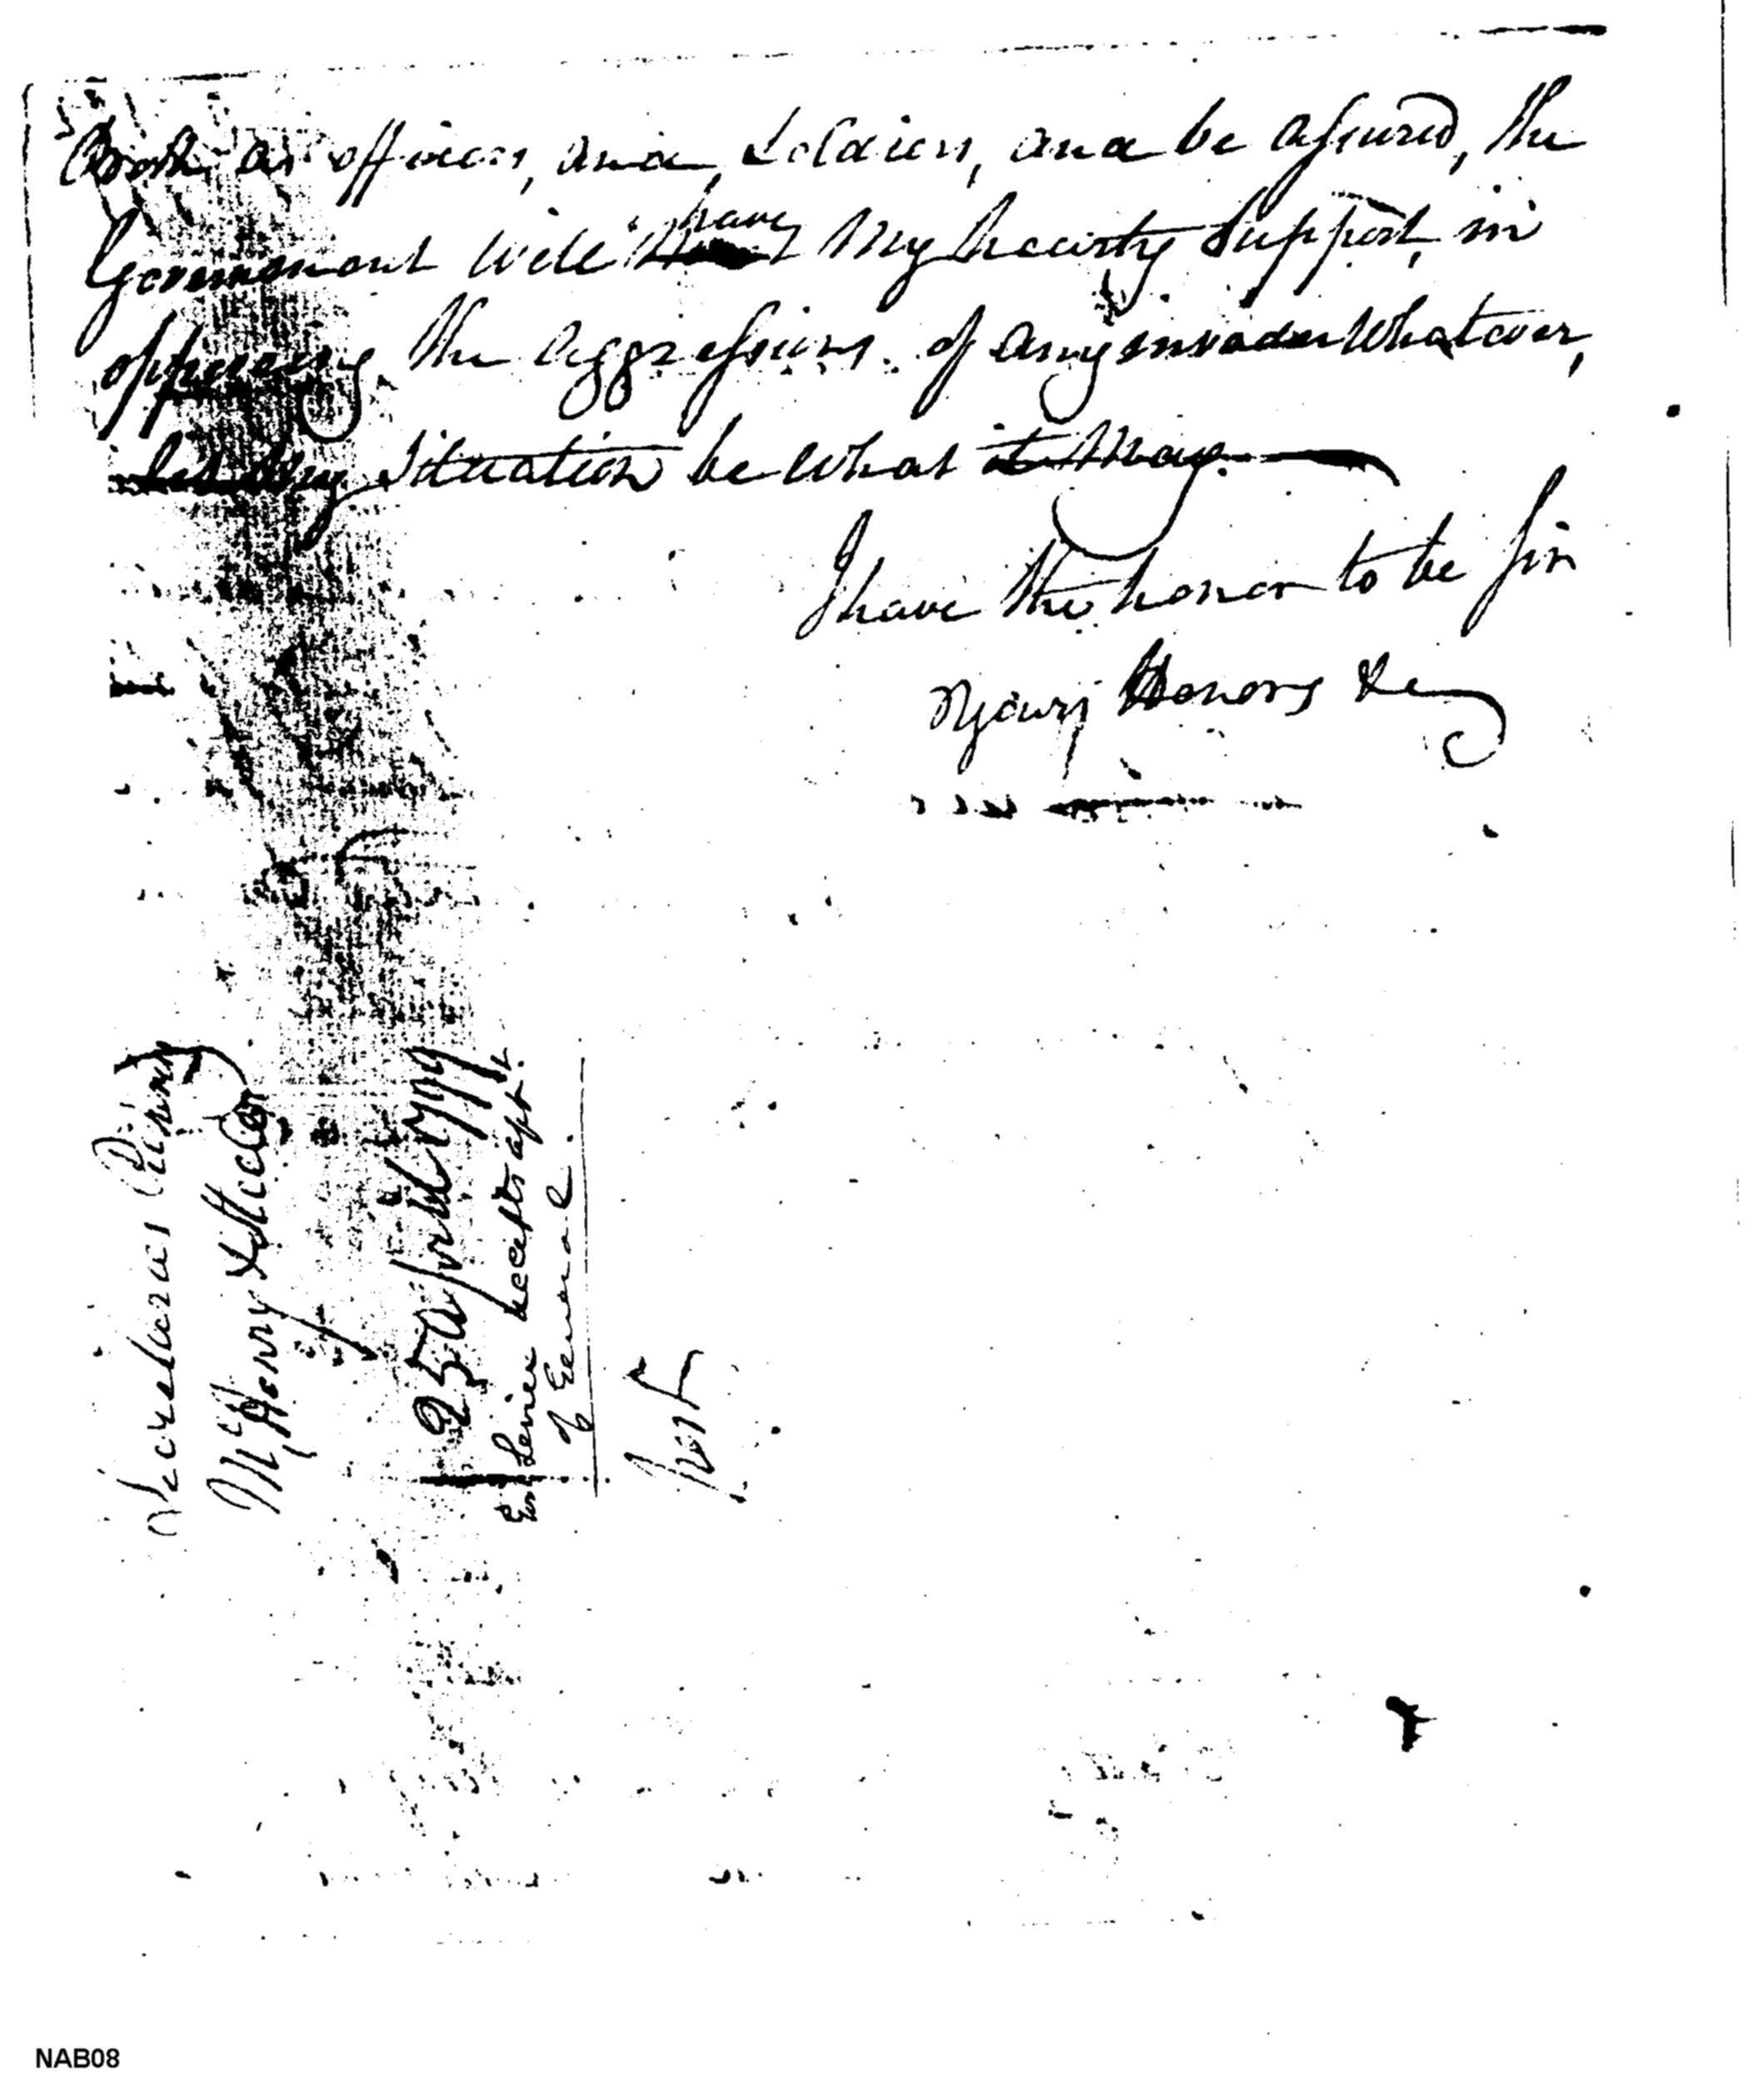 Both as officers, and Soldiers, and be assured, the
Government will have My hearty Support, in
opposeing the aggressions of any invader Whatever,
Let My Situation be What it May.
I have the honor to be Sir
Your Honors &c
Secretaries
McHenry &
25 April 1799
of General
NAB08